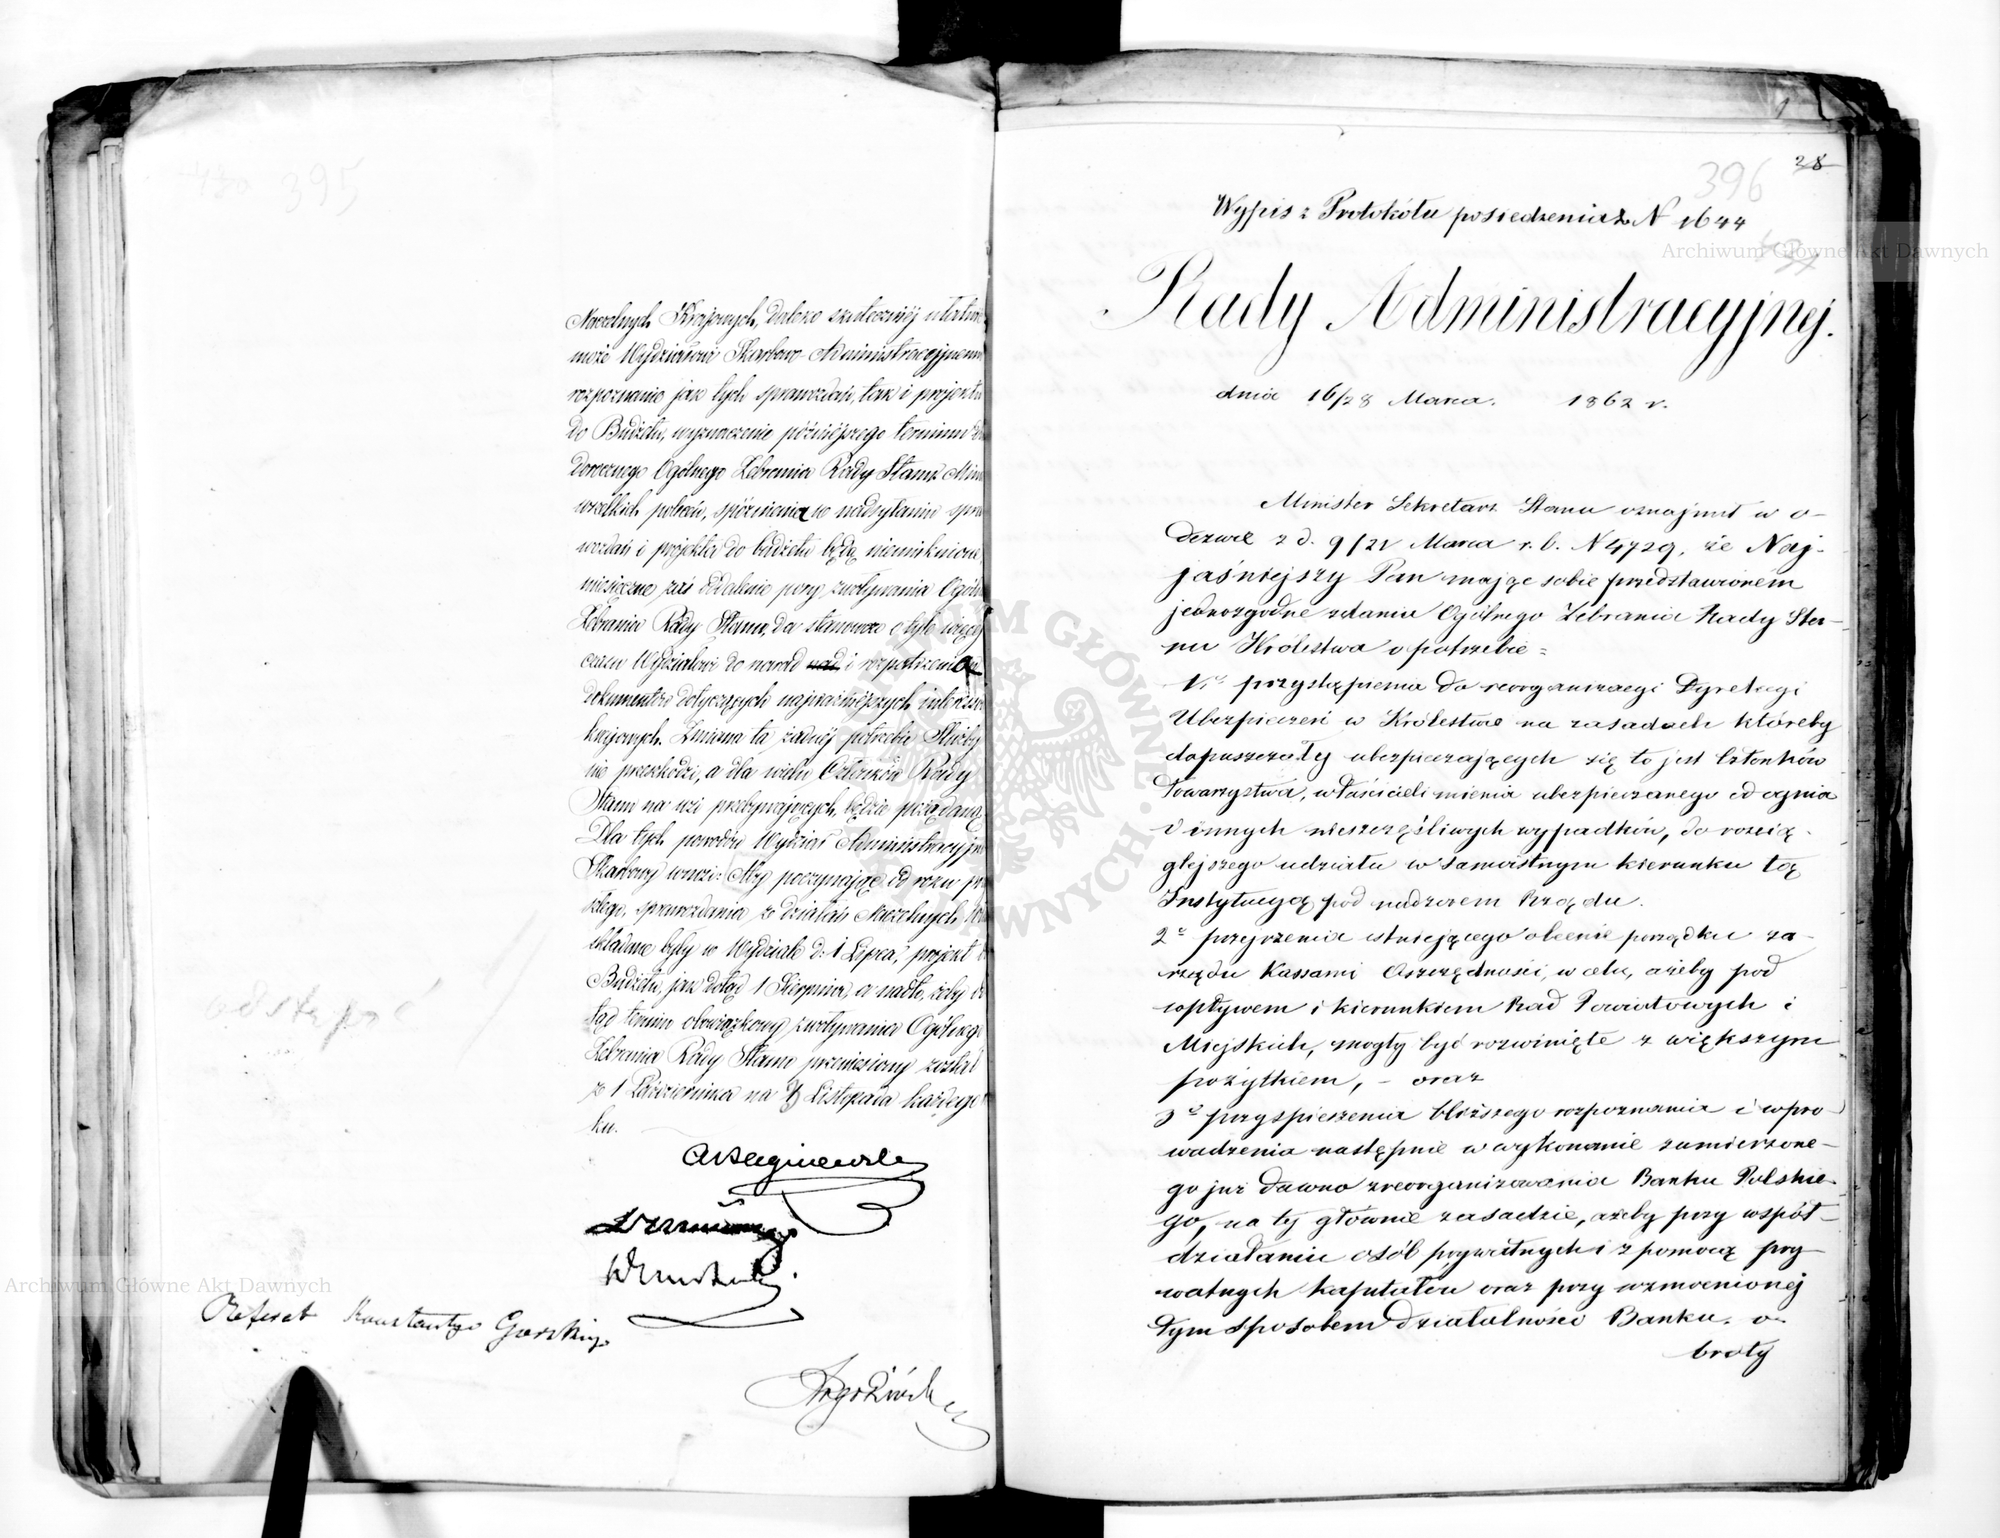 395
Naczelnych Krajowych, daleko skuteczniéj ułatwi
może Wydziałowi Skarbowo-Administracyjnemu
rozpoznanie jak tych sprawozdań, tak i projektu
do Budżetu, wyznaczenie późniéjszego terminu
dorocznego Ogólnego Zebrania Rady Stanu. Mimo
wszelkich poleceń, spóźnienia w nadsyłaniu spra
wozdań i projektu do budżetu będą nieuniknione,
miesięczne zaś oddalenie pory zwoływania Ogóln
Zebrania Rady Stanu, da stanowczo o tyle więcéj
czasu Wydziałowi do narad nad i rozpatrzenia
dokumentów dotyczących najważniéjszych interesów
krajowych. Zmiana ta żadnéj potrzebie Służby
nie przeszkodzi, a dla wielu Członków Rady
Stanu na wsi przebywających, będzie pożądaną.
Dla tych powodów Wydział Administracyjno
Skarbowy wnosi: Aby poczynając od roku prz
szłego, sprawozdania z działań Naczelnych Wła
składane były w Wydziale d. 1 Lipca, projekt
Budżetu, jak dotąd 1 Sierpnia, a nadto, żeby
tąd termin obowiązkowy zwoływania Ogólnego
Zebrania Rady Stanu przeniesiony został
z 1 Października na 1 Listopada każdego
ku.
Referat Konstantego Gorskiego
odstąpić
1
28
396
Wypis z Protokółu posiedzenia N 1644
Rady Administracyjnej.
dnia 16/28 Marca. 1862 r.
Minister Sekretarz Stanu oznajmił w o-
dezwie z d. 9/21 Marca r. b. N 4729, że Naj-
jaśniejszy Pan mając sobie przedstawionem
jednozgodne zdania Ogólnego Zebrania Rady Sta-
nu Królestwa o potrzebie =
1o przystąpienia do reorganizacyi Dyrekcyi
Ubezpieczeń w Królestwie na zasadach któreby
dopuszczały ubezpieczających się to jest Członków
Towarzystwa, właścicieli mienia ubezpieczanego od ognia
i innych nieszczęśliwych wypadków, do rozcią-
glejszego udziału w samoistnym kierunku tą
Instytucyą pod nadzorem Rządu.
2o przejrzenia istniejącego obecnie porządku za-
rządu Kassami Oszczędności, w celu, ażeby pod
wpływem i kierunkiem Rad Powiatowych i
Miejskich, mogły być rozwinięte z większym
pożytkiem, - oraz
3o przyspieszenia bliższego rozpoznania i wpro-
wadzenia następnie w wykonanie zamierzone-
go już dawno zreorganizowania Banku Polskie-
go, na tej głównie zasadzie, ażeby przy współ-
działaniu osób prywatnych i z pomocą pry-
watnych kapitałów oraz przy wzmocnionej
tym sposobem działalności Banku, o-
broty
Archiwum Główne Akt Dawnych
Archiwum Główne Akt Dawnych